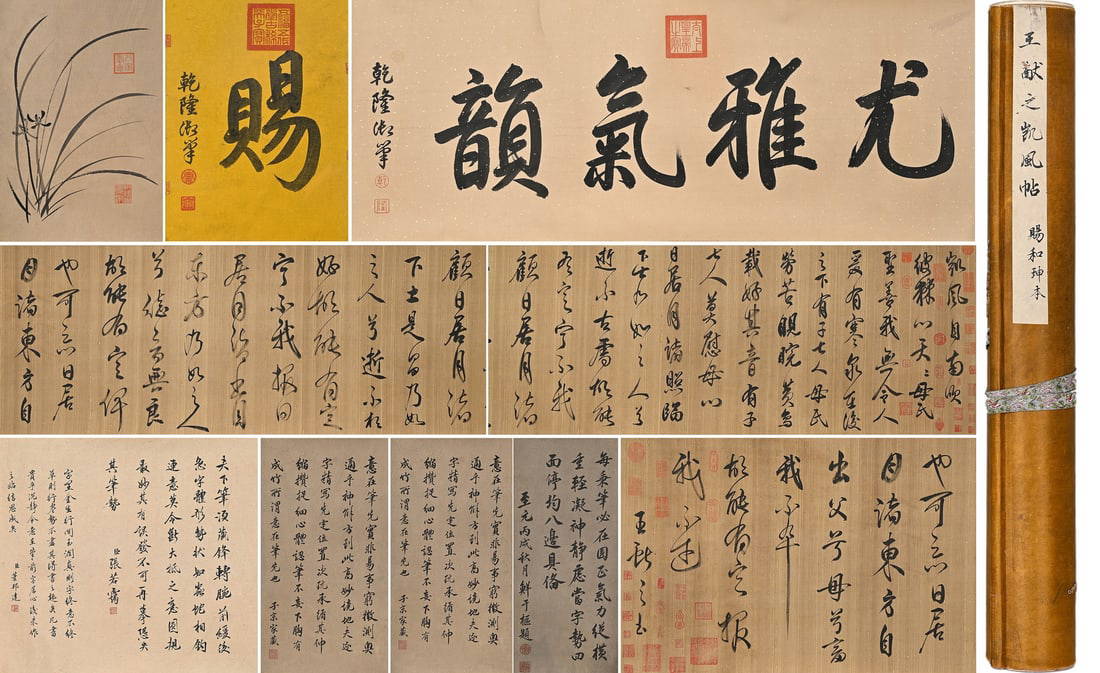 王獻之凱風帖
賜和珅本
尤雅氣韻
乾隆御筆
賜
乾隆御筆
凱風自南吹
彼棘心夭夭母氏
聖善我無令人
爰有寒泉在浚
之下有子七人母氏
勞苦睍睆黃鳥
載好其音有子
七人莫慰母心
日居月諸照臨
下土乃如之人兮
逝不古處胡能
有定寧不我
顧日居月諸
顧日居月諸
下土是冒乃如
之人兮逝不相
好胡能有定
寧不我報日
居月諸出自
東方乃如之人
兮德音無良
胡能有定俾
也可忘日居
月諸東方自
也可忘日居
月諸東方自
出父兮母兮畜
我不卒
胡能有定報
我不述
王獻之書
每秉筆必在圓正氣力縱橫
重輕凝神靜慮當字勢四
面停均八邊具備
至元丙戌秋月鮮于樞題
意在筆先實非易事窮微測奥
通乎神解方到此高妙境地夫迩
字精寫先定位置次玩承循其仲
縮攢捉細心體認筆不妄下胸有
成竹所謂意在筆先也
子京家藏
意在筆先實非易事窮微測奥
通乎神解方到此高妙境地夫迩
字精寫先定位置次玩承循其仲
縮攢捉細心體認筆不妄下胸有
成竹所謂意在筆先也
子京家藏
夫下筆須藏鋒轉腕前緩後
急字體形勢狀如蟲蛇相鈎
連意莫令斷大抵之意圓規
最妙其有誤發不可再摹恐失
其筆勢
臣張若靄
字裏金生行間玉潤真則字終意不終
草則行盡勢不盡其得書之趣凡書
貴乎沉靜令意在筆前字居心後未作
之始結思成矣
臣董邦達